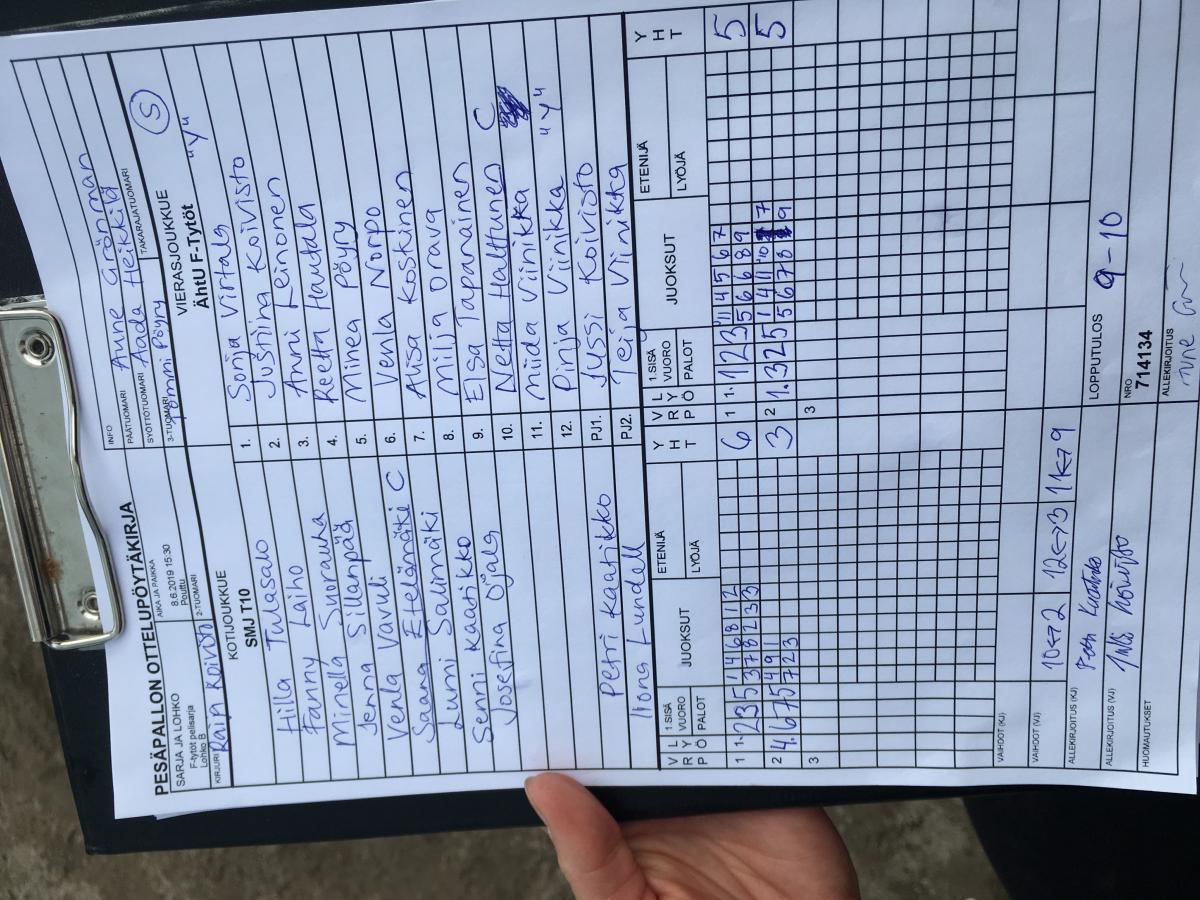 PESÄPALLON OTTELUPÖYTÄKIRJA
INFO
SARJA JA LOHKO
F-tytöt pelisarja
Lohko B
AIKA JA PAIKKA
8.6.2019 15:30
Pouttu
PÄÄTUOMARI Anne Grönman
SYÖTTÖTUOMARI Aada Heikkilä
KIRJURI Raija Koivisto
2-TUOMARI
3-TUOMARI Tommi Pöyry
TAKARAJATUOMARI
S
KOTIJOUKKUE
SMJ T10
VIERASJOUKKUE
ÄhtU F-Tytöt "Y"
Hilla Tulasalo 1. Sonja Virtala
Fanny Laiho 2. Justiina Koivisto
Minella Suorauha 3. Anni Leinonen
Jenna Sillanpää 4. Reetta Hautala
Venla Vavuli 5. Minea Pöyry
Saana Etelämäki C 6. Venla Norpo
Lumi Salimäki 7. Alisa Koskinen
Senni Kaatikko 8. Milja Orava
Josefina Ojala 9. Elsa Tapanainen C
10. Netta Halttunen
11. Miida Viinikka "Y"
12. Pinja Viinikka
Petri Kaatikko PJ1. Jussi Koivisto
Iiona Lundell PJ2. Teija Viinikka
V R P L Y Ö 1.SISÄ VUORO PALOT JUOKSUT ETENIJÄ LYÖJÄ Y H T V R P L Y Ö 1.SISÄ VUORO PALOT JUOKSUT ETENIJÄ LYÖJÄ Y H T
1 1. 2 3 5 1 4 6 8 1 2 6 1 1. 1 2 3 11 4 5 6 7 5
3 7 8 2 3 3 5 6 6 8 9
2 4. 6 7 5 4 9 1 3 2 1. 3 2 5 1 4 11 10 7 5
7 2 3 5 6 7 8 9
3 3
VAIHDOT (KJ)
VAIHDOT (VJ) 10↔2 12↔3 11↔9
ALLEKIRJOITUS (KJ) Petri Kaatikko
LOPPUTULOS 9-10
ALLEKIRJOITUS (VJ) Jussi Koivisto
NRO
714134
HUOMAUTUKSET
ALLEKIRJOITUS